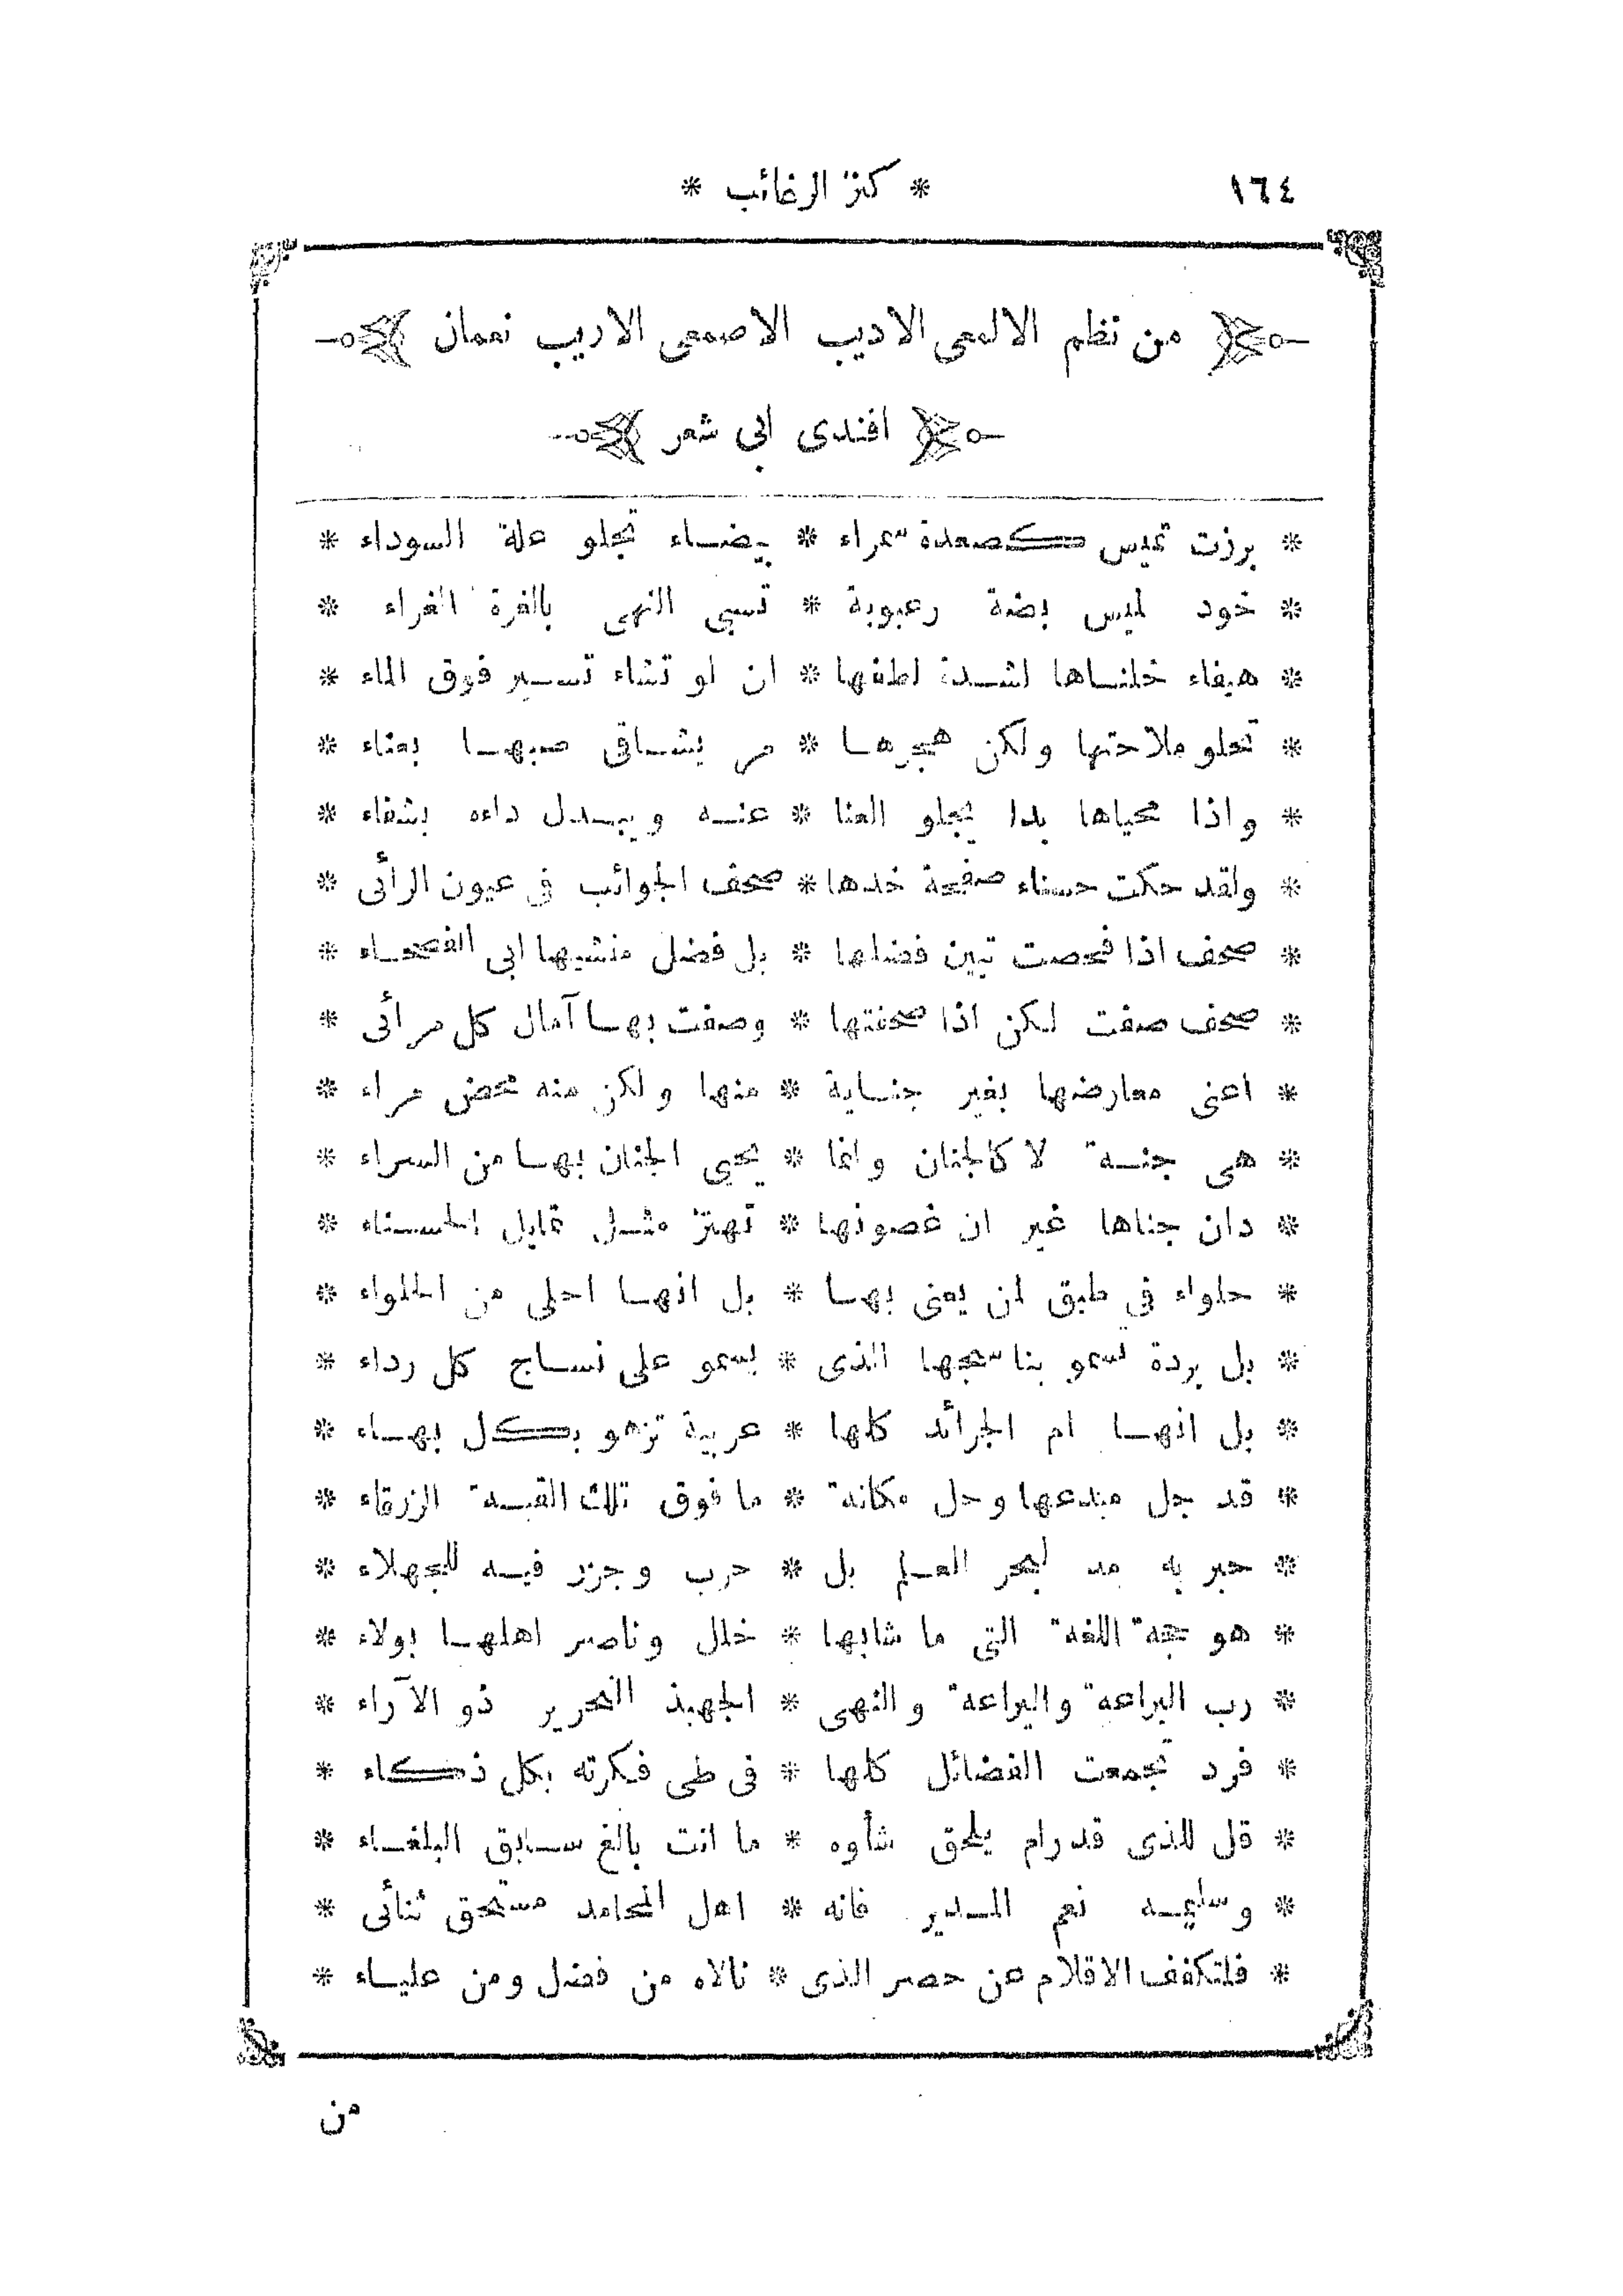 ١٦٤
* كنز الرغائب *
من نظم الالمعى الاديب الاصمعى الاريب نعمان
افندى ابى شعر
* برزت تميس كصعدة سمراء * بيضاء تجلو علة السوداء *
* خود لميس بضة رعبوبة * تسبى النهى بالغرة الغراء *
* هيفاء خلناها لشدة لطفها * ان لو تشاء تسير فوق الماء *
* تحلو ملاحتها ولكن هجرها * مر يشاقى صبها بعناء *
* واذا محياها بدا يجلو العنا * عنه ويبدل داءه بشفاء *
* ولقد حكت حسناء صفحة خدها * صحف الجوائب فى عيون الرأئى *
* صحف اذا فحصت تبين فضلها * بل فضل منشيها ابى الفصحاء *
* صحف صفت لكن اذا صحفتها * وصفت بها آمال كل مرأئى *
* اعنى معارضها بغير جناية * منها ولكن منه محض مراء *
* هى جنة لا كالجنان وانما * يحيى الجنان بها من السراء *
* دان جناها غير ان غصونها * تهتز مثل تمايل الحسناء *
* حلواء فى طبق لمن يعنى بها * بل انها احلى من الحلواء *
* بل بردة تسمو بناسجها الذى * يسمو على نساج كل رداء *
* بل انها ام الجرائد كلها * عربية تزهو بكل بهاء *
* قد جل مبدعها وحل مكانة * ما فوق تلك القبة الزرقاء *
* حبر به مد لبحر العلم بل * حرب وجزر فيه للجهلاء *
* هو حجة اللغة التى ما شابها * خلل وناصر اهلها بولاء *
* رب البراعة واليراعة والنهى * الجهبذ النحرير ذو الآراء *
* فرد تجمعت الفضائل كلها * فى طى فكرته بكل ذكاء *
* قل للذى قد رام يلحق شأوه * ما انت بالغ سابق البلغاء *
* وسليمه نعم المدير فانه * اهل المحامد مستحق ثنائى *
* فلتكفف الاقلام عن حصر الذى * نالاه من فضل ومن علياء *
من